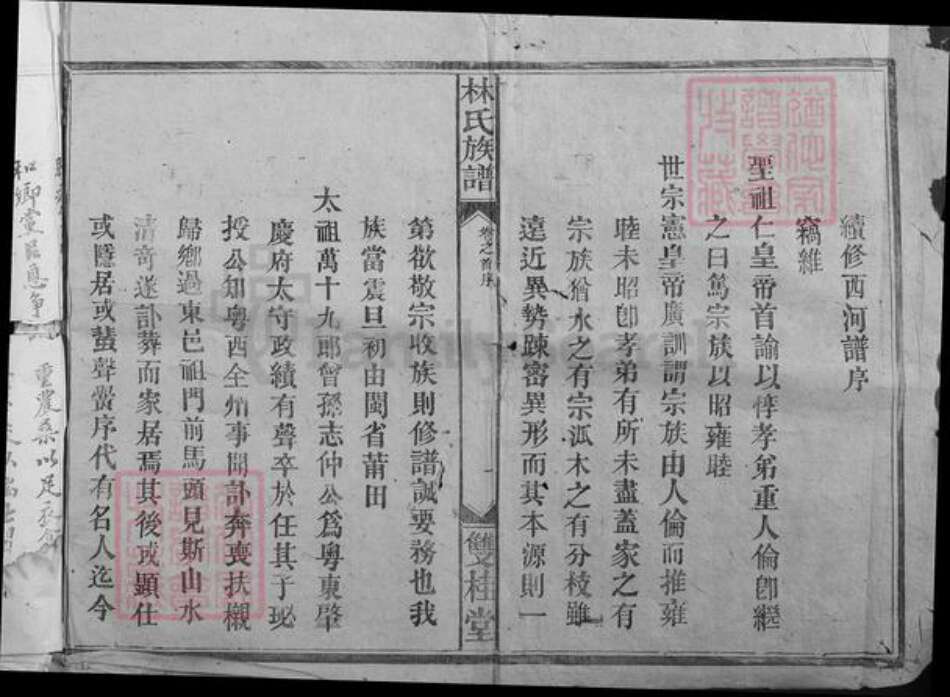 續修西河譜序
竊維
聖祖仁皇帝首諭以惇孝弟重人倫卽繼
之曰篤宗族以昭雍睦
世宗憲皇帝廣訓謂宗族由人倫而推雍
睦未昭卽孝弟有所未盡蓋家之有
宗族猶水之有宗派木之有分枝雖
遠近異勢踈密異形而其本源則一
林氏族譜
卷之首序
雙桂堂
第欲敬宗收族則修譜誠要務也我
族當震旦初由閩省莆田
太祖萬十九郎曾孫志仲公爲粤東肇
慶府太守政績有聲卒於任其子珌
授公知粤西全州事聞訃奔喪扶櫬
歸鄉過東邑祖門前馬頭見斯山水
清奇遂訃葬而家居焉其後或顯仕
或隱居或蜚聲黌序代有名人迄今
和鄉黨以息爭
重農桑以足衣食